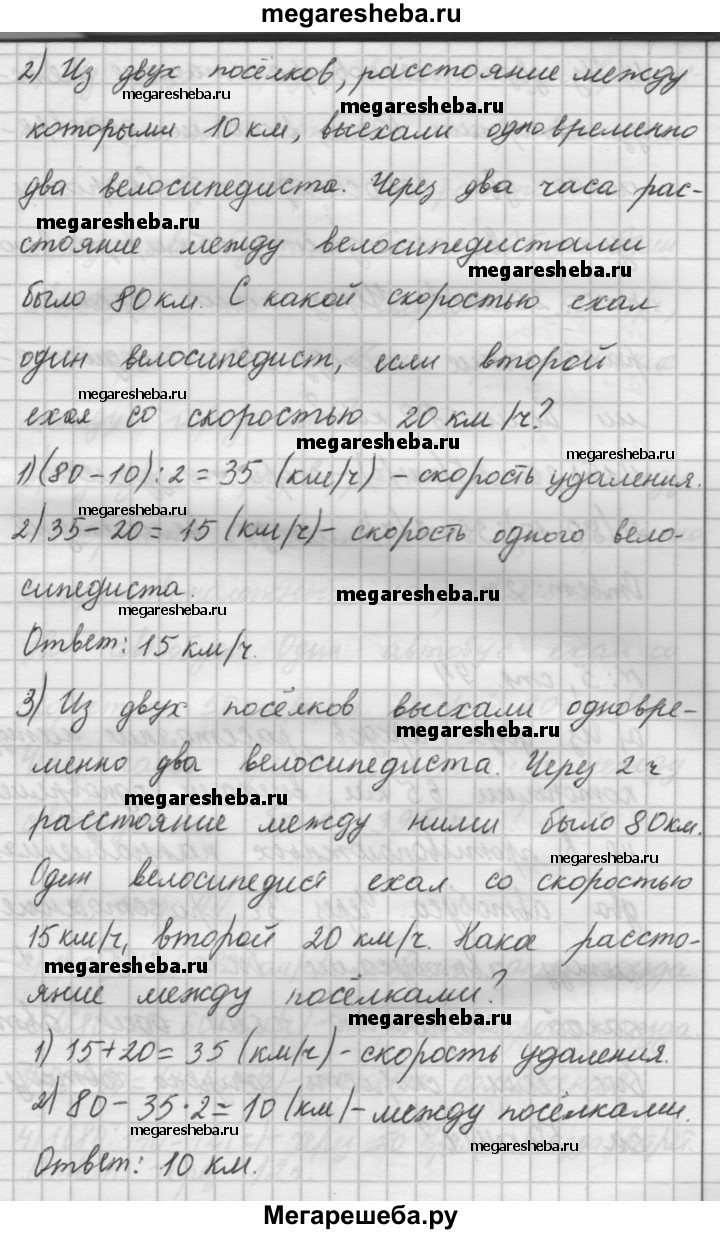 megaresheba.ru
2) Из двух посёлков, расстояние между
megaresheba.ru
megaresheba.ru
которыми 10 км, выехали одновременно
два велосипедиста. Через два часа рас-
megaresheba.ru
стояние между велосипедистами
megaresheba.ru
было 80 км. С какой скоростью ехал
один велосипедист, если второй
megaresheba.ru
ехал со скоростью 20 км/ч?
megaresheba.ru
megaresheba.ru
1) (80-10):2=35 (км/ч) - скорость удаления.
megaresheba.ru
2) 35-20=15 (км/ч) - скорость одного вело-
сипедиста.
megaresheba.ru
megaresheba.ru
Ответ: 15 км/ч.
megaresheba.ru
3) Из двух посёлков выехали одновре-
megaresheba.ru
менно два велосипедиста. Через 2 ч
megaresheba.ru
расстояние между ними было 80 км.
megaresheba.ru
Один велосипедист ехал со скоростью
15 км/ч, второй 20 км/ч. Какое рассто-
megaresheba.ru
яние между посёлками?
megaresheba.ru
1) 15+20=35 (км/ч) - скорость удаления.
2) 80-35·2=10 (км) - между посёлками.
megaresheba.ru
megaresheba.ru
Ответ: 10 км.
Мегарешеба.ру